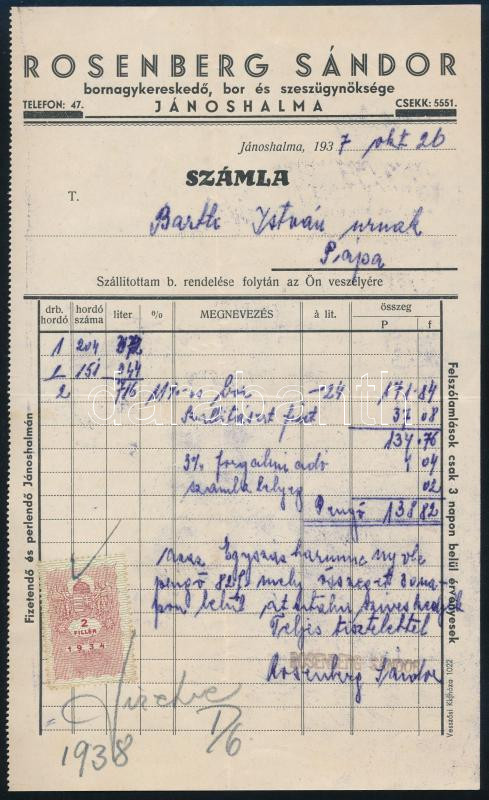 ROSENBERG SÁNDOR
bornagykereskedő, bor és szeszügynöksége
TELEFON: 47. JÁNOSHALMA CSEKK: 5551.
Jánoshalma, 1937 okt 26
SZÁMLA
T. Barth István urnak
Pápa
Szállitottam b. rendelése folytán az Ön veszélyére
drb. hordó hordó száma liter % MEGNEVEZÉS à lit. összeg P f
1 204 372
1 151 344
2 716 11%-os bor -24 171.84
37 08
134.76
3% forgalmi adó 4 04
számla bélyeg 02
Pengő 138 82
azaz Egyszáz harmincnyolc
pengő 82f mely összeget 3 na-
pon belül átutalni
Teljes tisztelettel
ROSENBERG SÁNDOR
Rosenberg Sándor
Fizetendő és perlendő Jánoshalmán
Felszólamlások csak 3 napon belül érvényesek
Vesszősi Kújhaza 1022
2
FILLÉR
1934
1938
I/6
darabanth